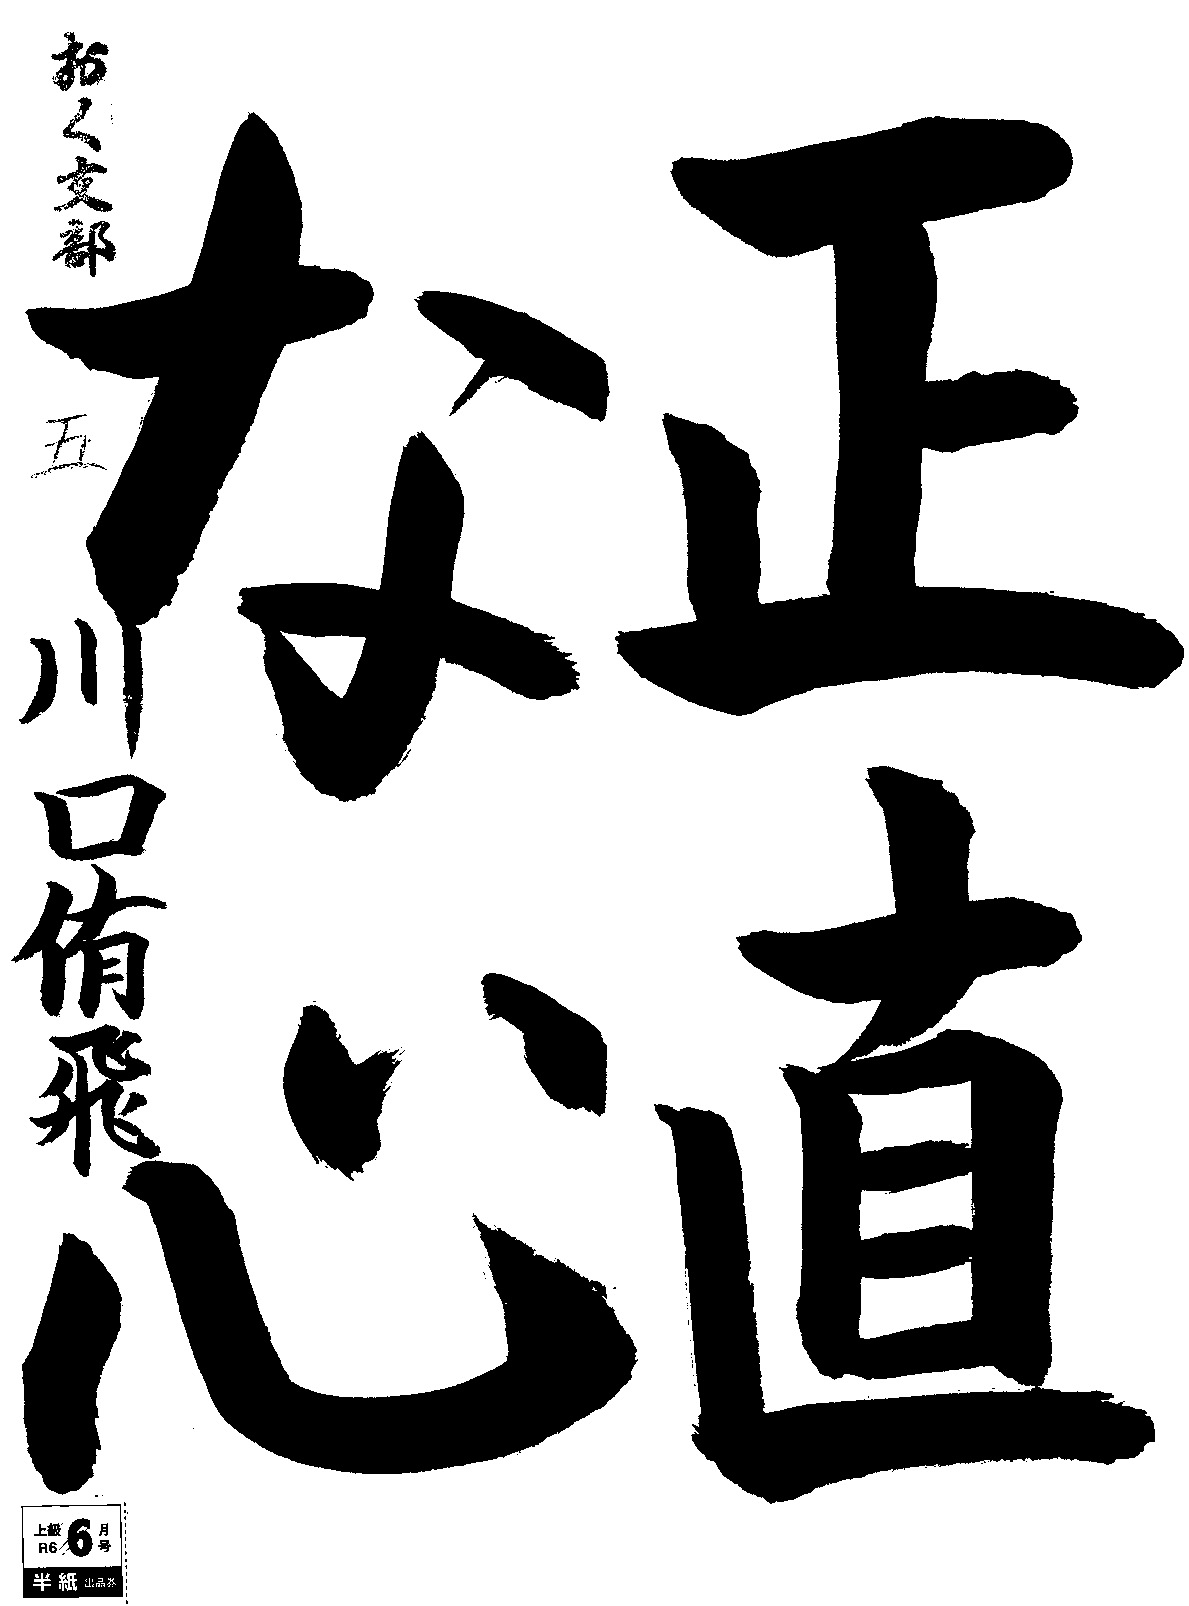 正直
な心
おく支部
五
川口侑飛
上級
R6/6月号
半紙 出品券